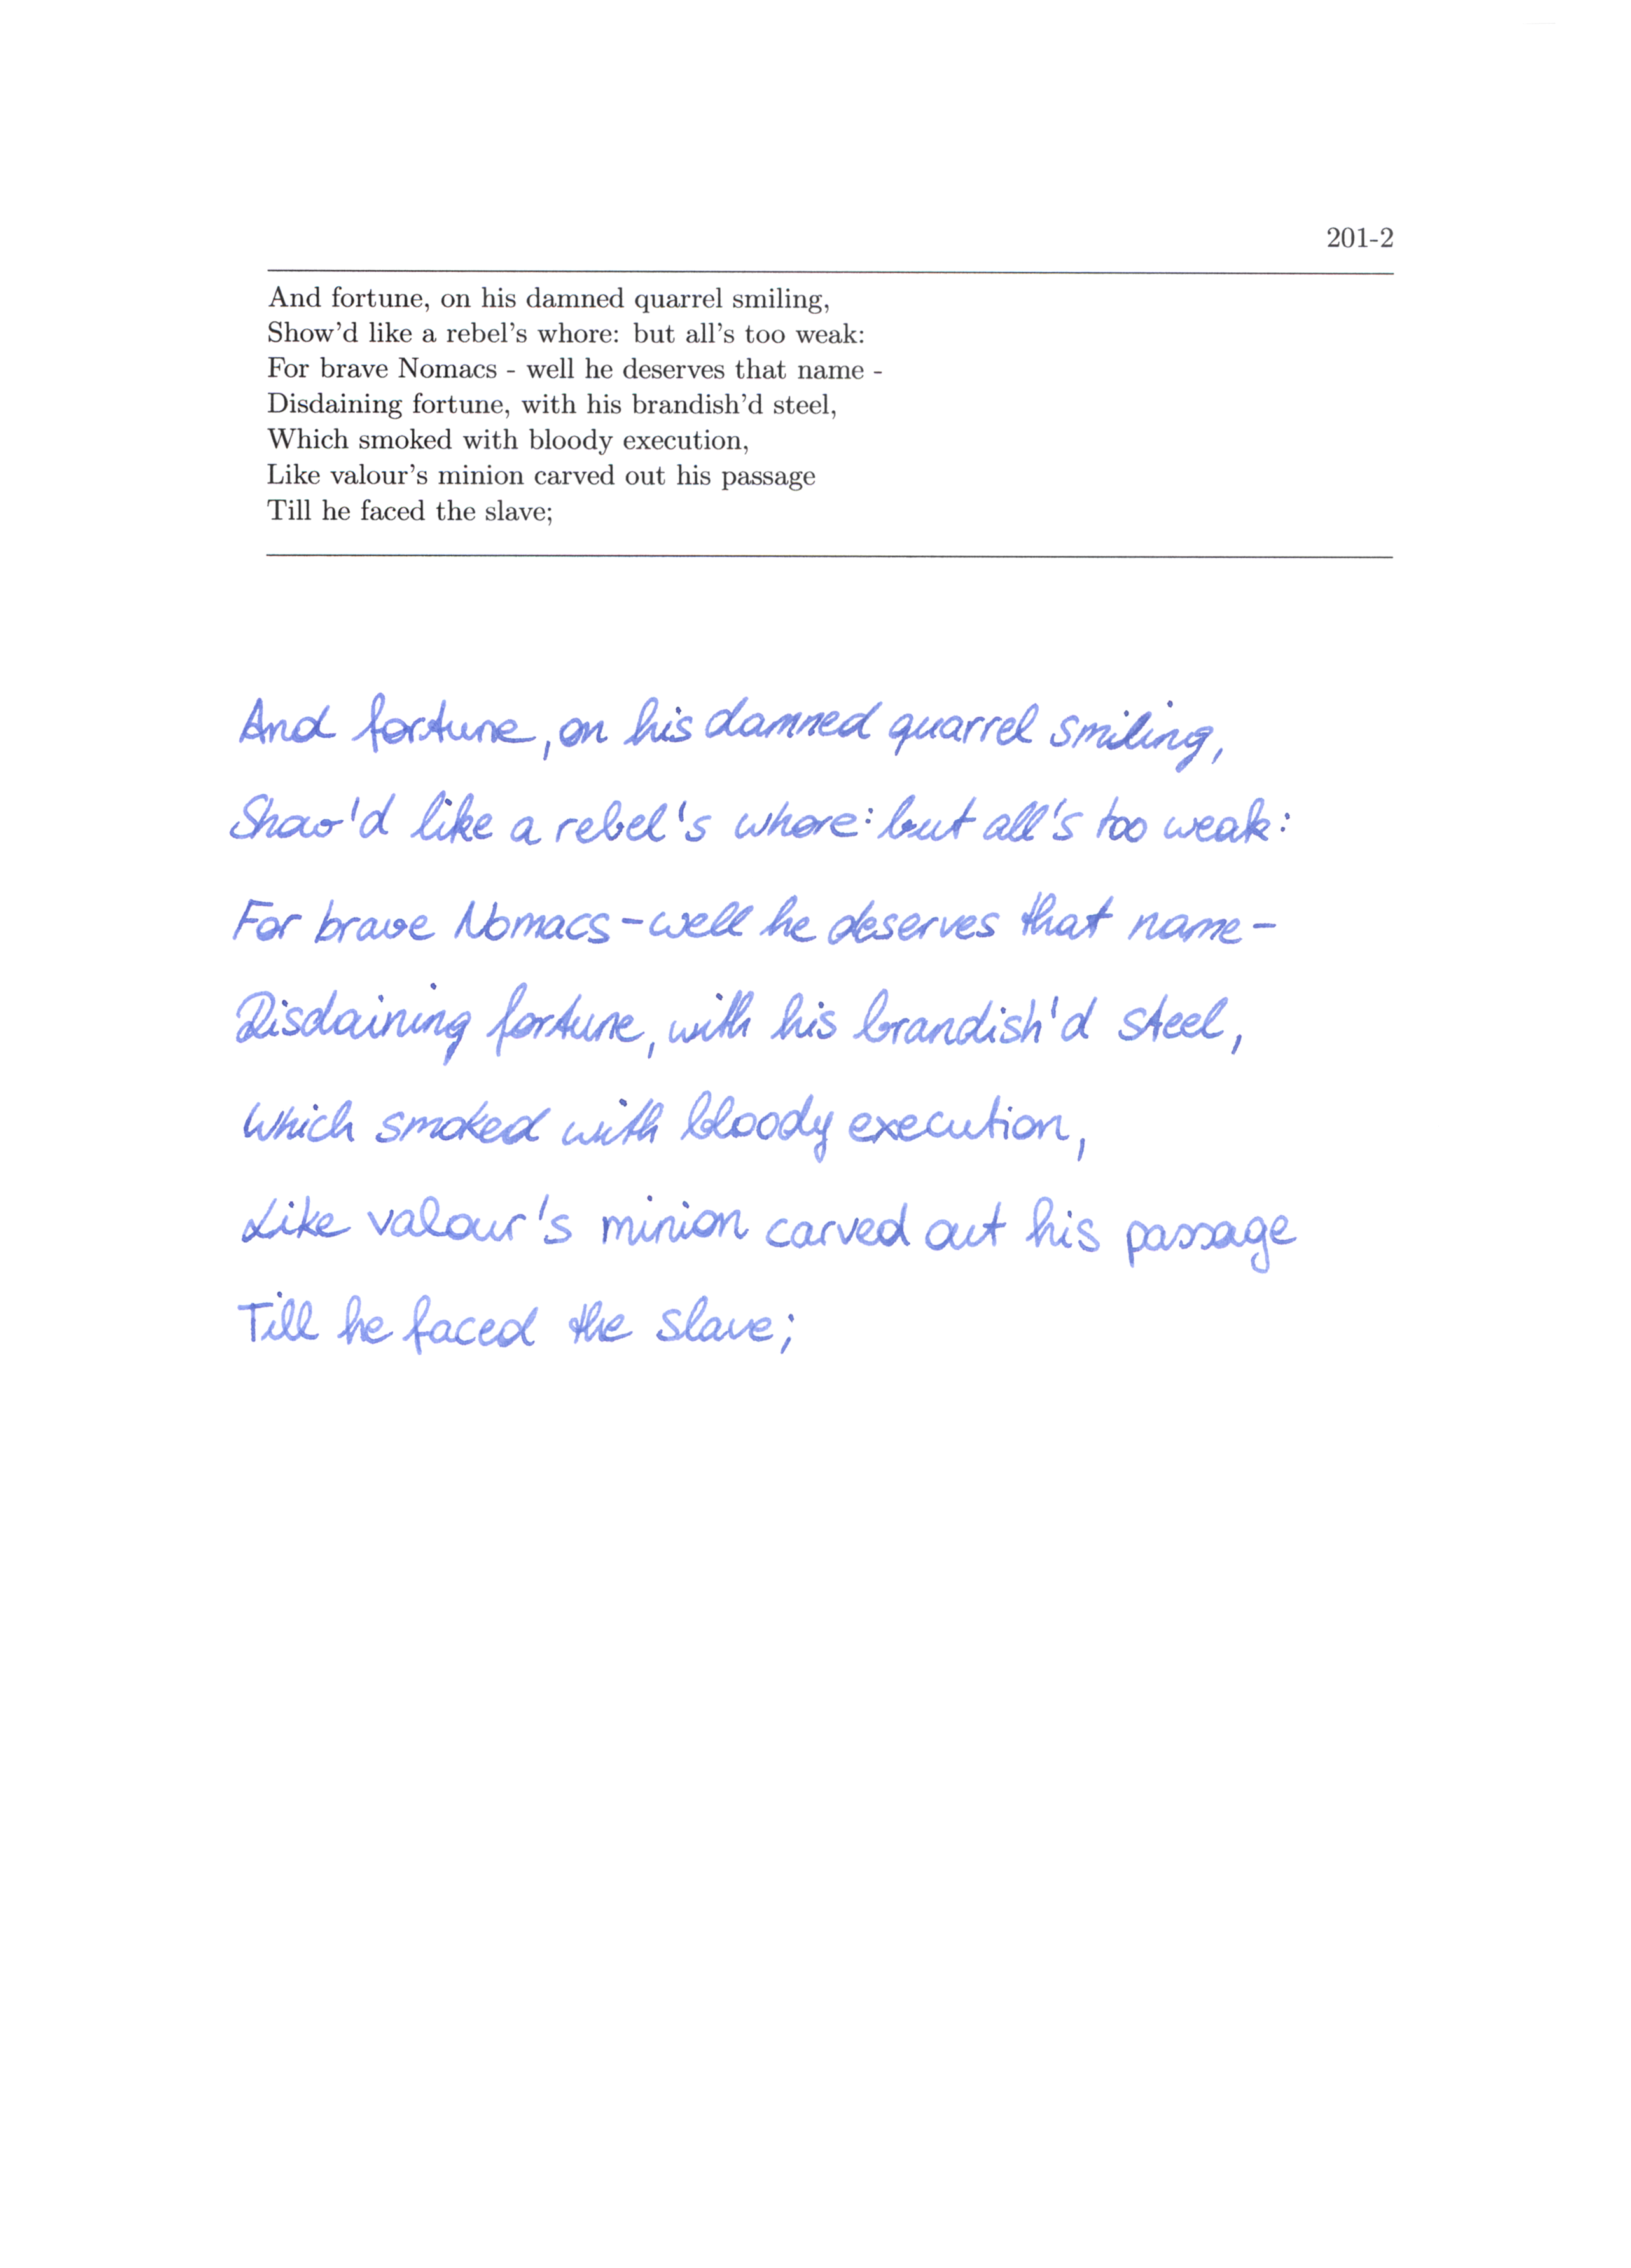 201-2
And fortune, on his damned quarrel smiling,
Show'd like a rebel's whore: but all's too weak:
For brave Nomacs - well he deserves that name -
Disdaining fortune, with his brandish'd steel,
Which smoked with bloody execution,
Like valour's minion carved out his passage
Till he faced the slave;
And fortune, on his damned quarrel smiling,
Show'd like a rebel's whore: but all's too weak:
For brave Nomacs - well he deserves that name -
Disdaining fortune, with his brandish'd steel,
Which smoked with bloody execution,
Like valour's minion carved out his passage
Till he faced the slave;